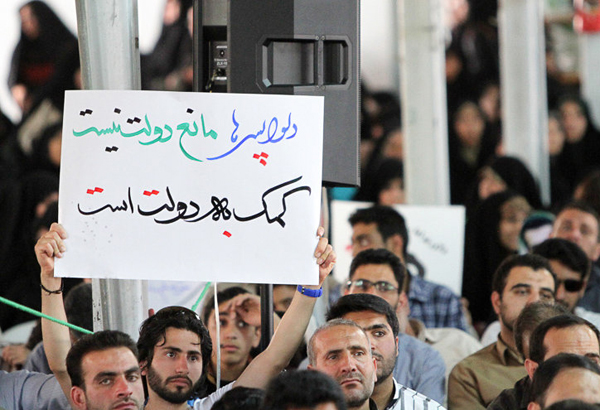 دلواپسی ها مانع دولت نیست
کمک به دولت است